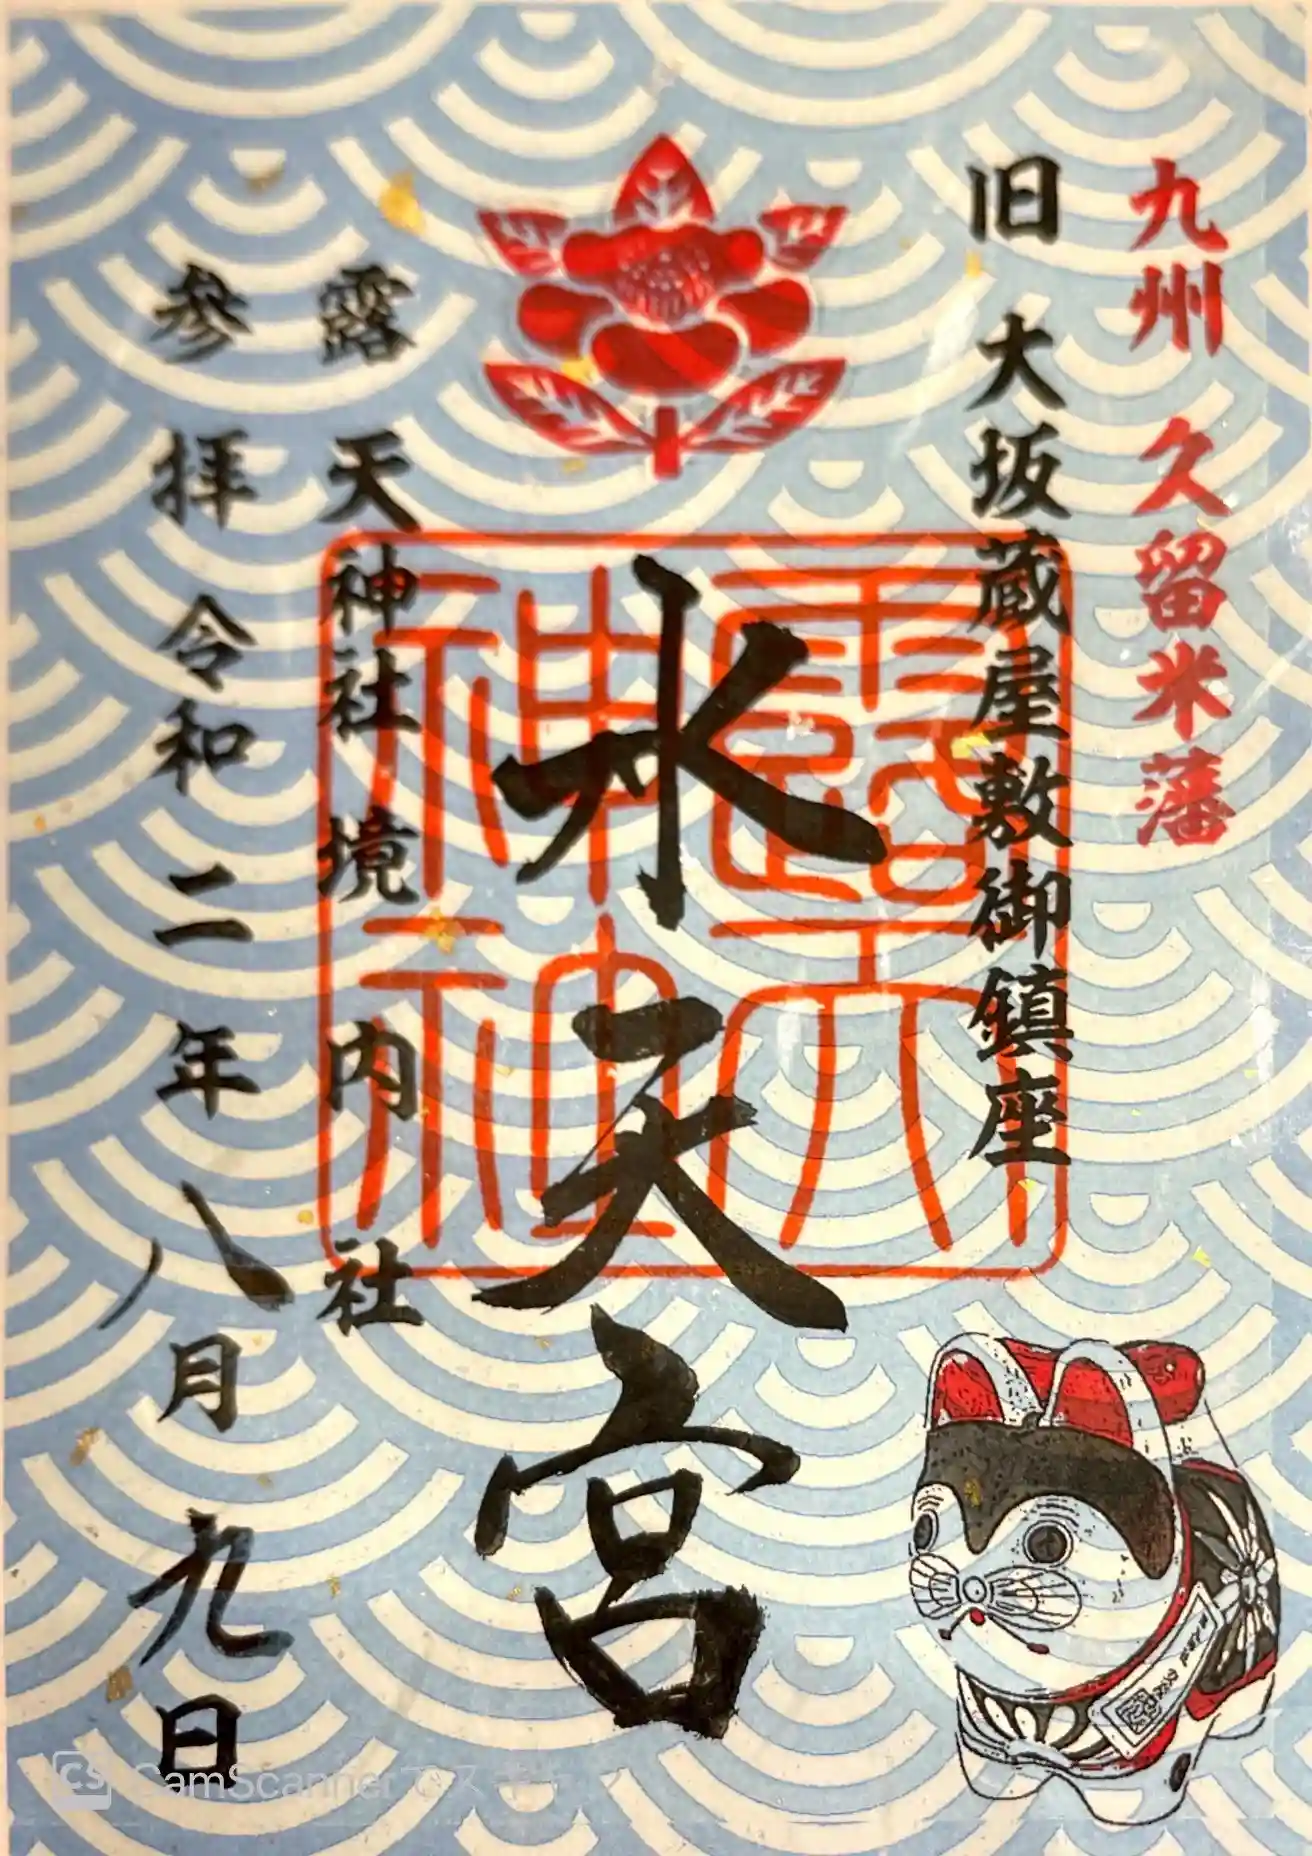 九州 久留米藩
旧 大坂蔵屋敷御鎮座
水天宮
露天神社
露天神社 境内社
参拝 令和二年八月九日
CS CamScannerでスキャン